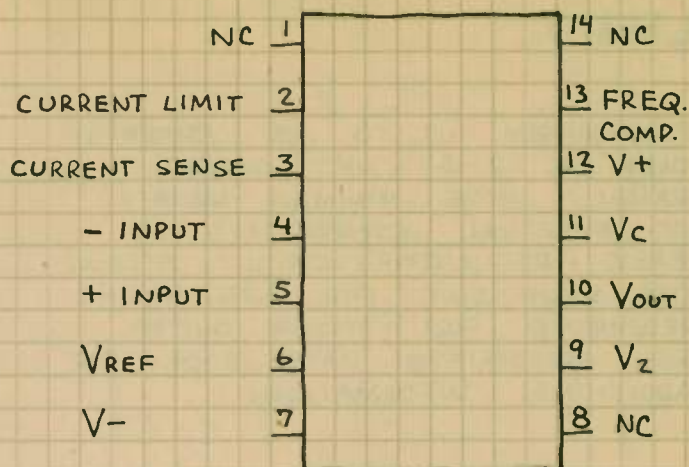 NC 1
CURRENT LIMIT 2
CURRENT SENSE 3
- INPUT 4
+ INPUT 5
VREF 6
V- 7
14 NC
13 FREQ.
COMP.
12 V+
11 VC
10 VOUT
9 VZ
8 NC